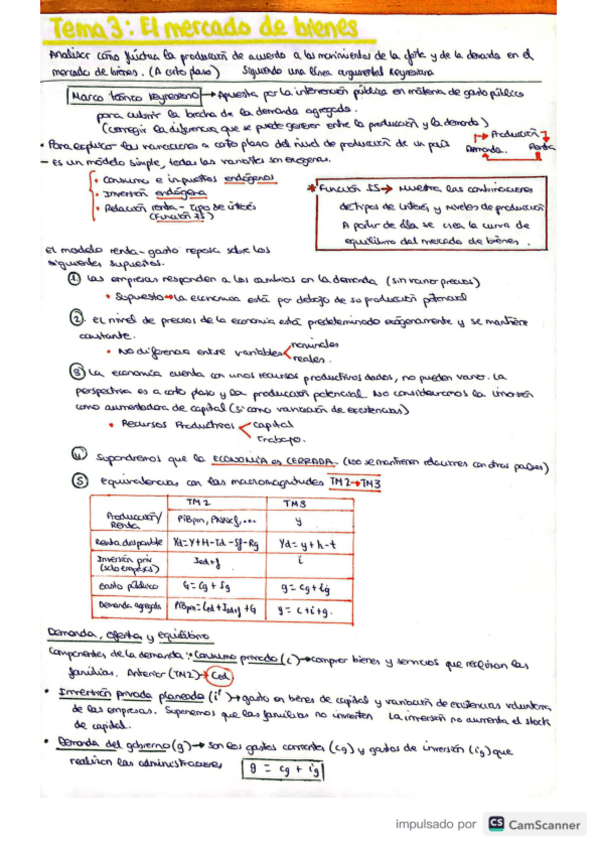 Tema 3: El mercado de bienes
Analizar cómo fluctua la producción de acuerdo a los movimientos de la oferta y de la demanda en el
mercado de bienes. (A corto plazo) Siguiendo una línea argumental Keynesiana
Marco teórico Keynesiano → Apuesta por la intervención pública en materia de gasto público
para cubrir la brecha de la demanda agregada.
(corregir la diferencia que se puede generar entre la producción y la demanda)
Producción
• Para explicar las variaciones a corto plazo del nivel de producción de un país
Demanda Renta
– Es un modelo simple, todas las variables son exógenas.
• Consumo e impuestos endógenos
• Inversión endógena
• Relación renta – tipos de interés
(Función IS)
* Función IS → Muestra las combinaciones
de tipos de interés y niveles de producción
A partir de ella se crea la curva de
equilibrio del mercado de bienes.
El modelo renta-gasto reposa sobre los
siguientes supuestos.
1. Las empresas responden a los cambios en la demanda (sin variar precios)
• Supuesto → La economía está por debajo de su producción potencial
2. El nivel de precios de la economía está predeterminado exógenamente y se mantiene
constante.
• No diferencia entre variables nominales
reales.
3. La economía cuenta con unos recursos productivos dados, no pueden variar. La
perspectiva es a corto plazo y la producción potencial. No consideramos la inversión
como aumentadora de capital (si como variación de existencias)
• Recursos Productivos capital
Trabajo.
4. Supondremos que la ECONOMÍA es CERRADA. (No se mantienen relaciones con otros países)
5. equivalencias con las macromagnitudes TM2 → TM3
TM2 TM3
Producción/ Renta PIBpm, PNNcf,... y
Renta disponible Yd=Y+H-Td-Sf-Rg Yd=y+h-t
Inversión priv (solo empresas) i
Gasto público G=Cg+Ig g=cg+ig
Demanda agregada y=c+i+g.
Demanda, oferta y equilibrio
Componentes de la demanda: • Consumo privado (c) → comprar bienes y servicios que requieran las
familias. Anterior (TM2) → Ced
• Inversión privada planeada (i) → gasto en bienes de capital y variación de existencias voluntaria
de las empresas. Suponemos que las familias no invierten La inversión no aumenta el stock
de capital.
• Demanda del gobierno (g) → son los gastos corrientes (cg) y gastos de inversión (ig) que
realizan las administraciones g = cg + ig
impulsado por CS CamScanner